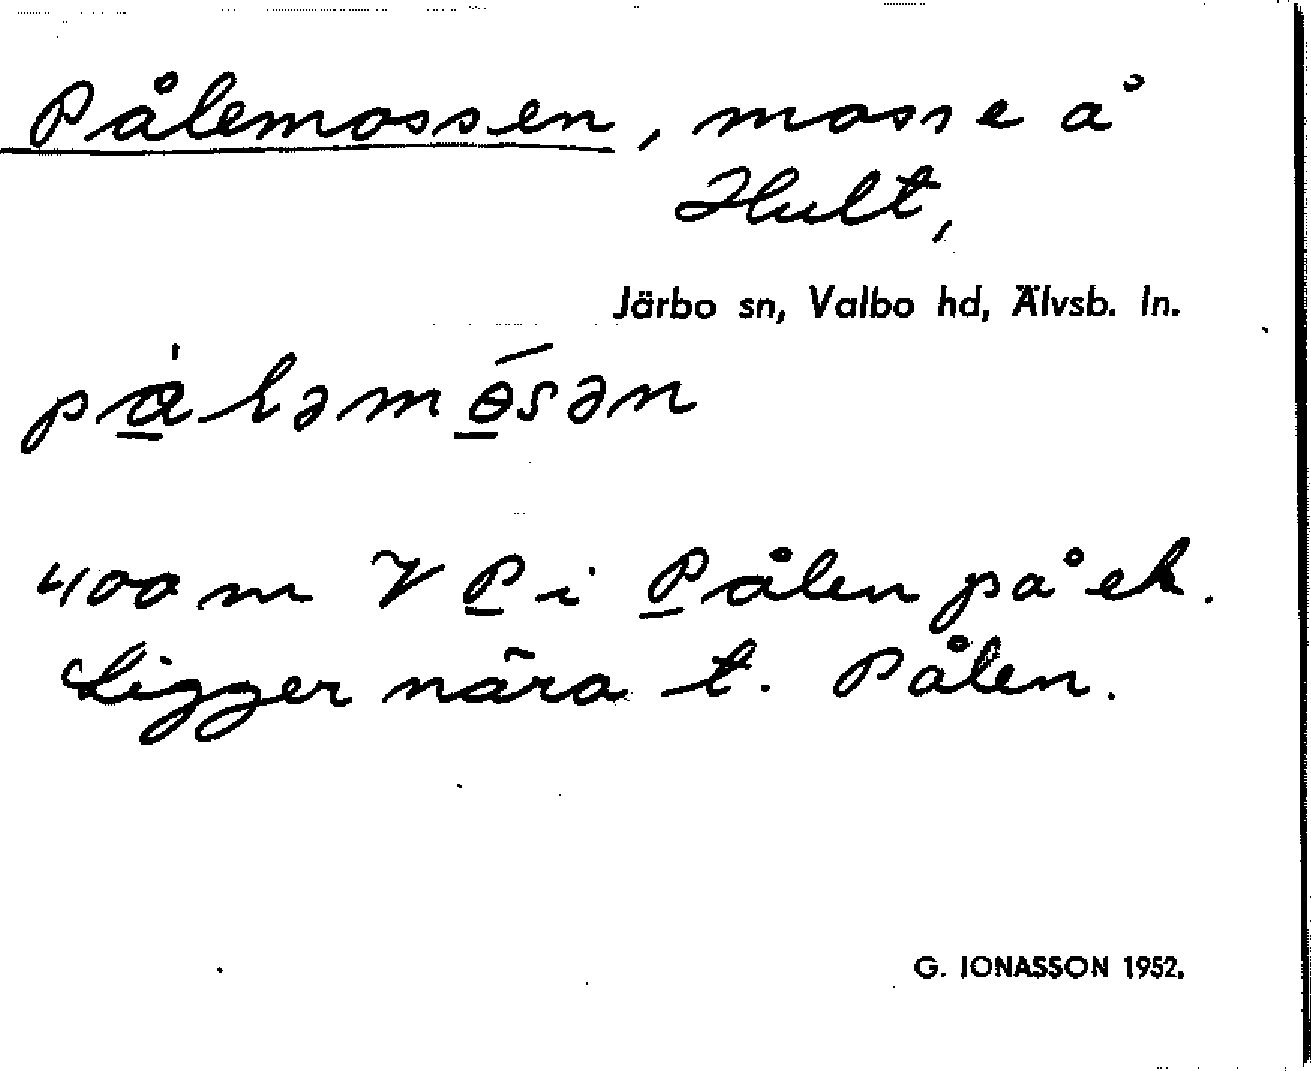 Pålemossen, mosse å
Hult,
Järbo sn, Valbo hd, Älvsb. ln.
pålǝmɵsǝn
400 m V P i Pålen på ek.
Ligger nära t. Pålen.
G. IONASSON 1952.